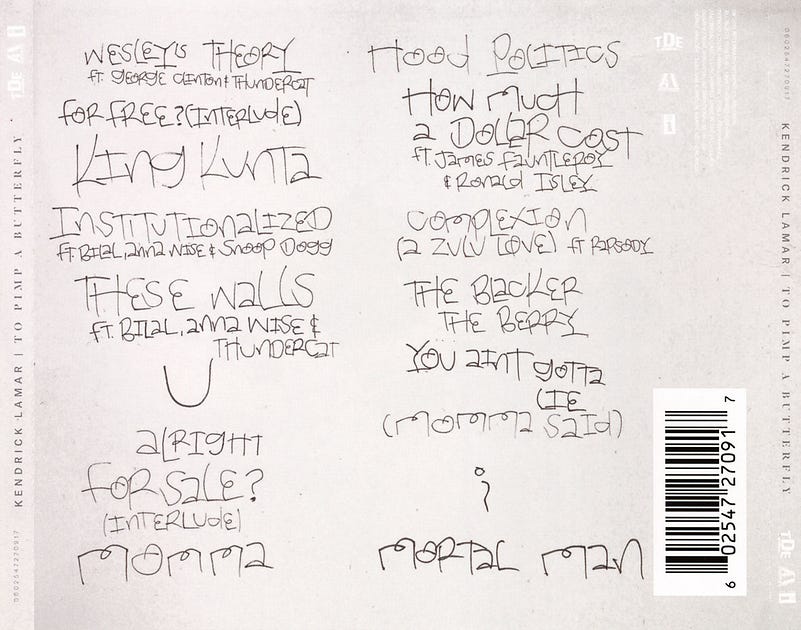 WESLEY'S THEORY
ft. GEORGE CLINTON & THUNDERCAT
FOR FREE? (INTERLUDE)
KING KUNTA
INSTITUTIONALIZED
ft BILAL, ANNA WISE & SNOOP DOGG
THESE WALLS
ft. BILAL, ANNA WISE &
THUNDERCAT
U
ALRIGHT
FOR SALE?
(INTERLUDE)
MOMMA
HOOD POLITICS
HOW MUCH
A DOLLAR COST
ft. JAMES FAUNTLEROY
& RONALD ISLEY
COMPLEXION
(A ZULU LOVE) ft RAPSODY
THE BLACKER
THE BERRY
YOU AINT GOTTA
LIE
(MOMMA SAID)
i
MORTAL MAN
KENDRICK LAMAR | TO PIMP A BUTTERFLY
0602547270917
TDE
KENDRICK LAMAR | TO PIMP A BUTTERFLY
0602547270917
TDE
TDE
6 02547 27091 7